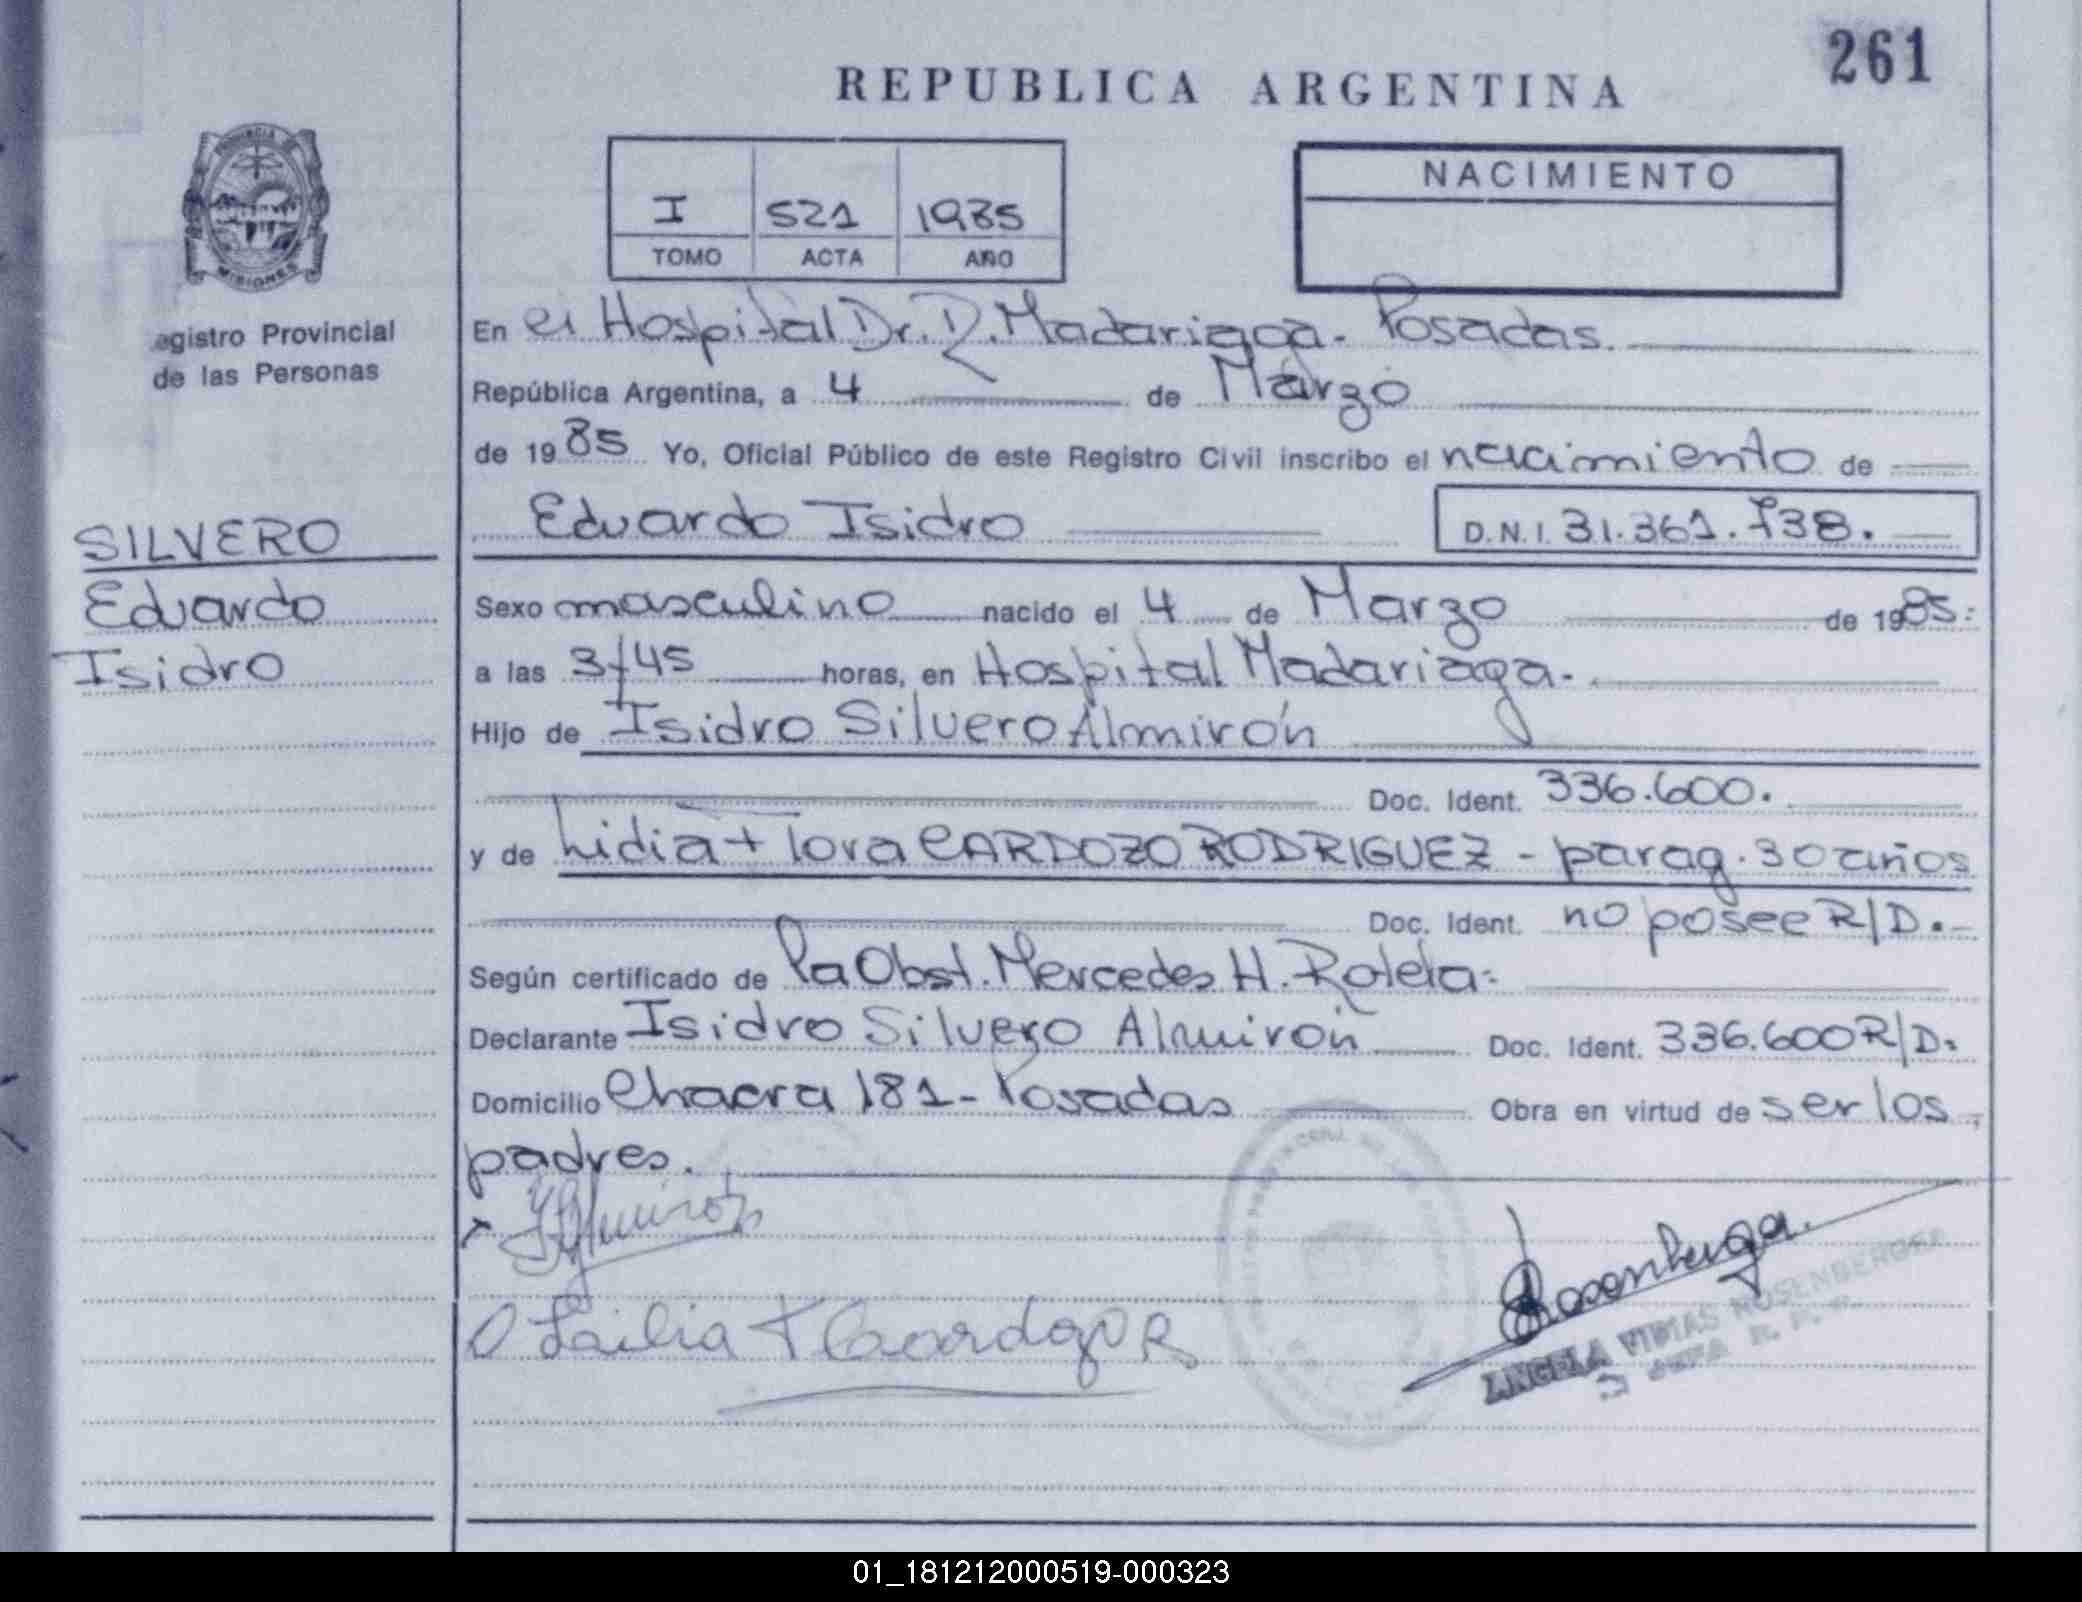 261
REPUBLICA ARGENTINA
PROVINCIA DE
MISIONES
NACIMIENTO
I 521 1985
TOMO ACTA AÑO
egistro Provincial
de las Personas
En el Hospital Dr. R. Madariaga. Posadas.
República Argentina, a 4 de Marzo
de 1985 Yo, Oficial Público de este Registro Civil inscribo el nacimiento de
Eduardo Isidro D.N.I. 31.361.738.
SILVERO
Eduardo
Isidro
Sexo masculino nacido el 4 de Marzo de 1985.
a las 3/45 horas, en Hospital Madariaga.
Hijo de Isidro Silvero Almirón
Doc. Ident. 336.600.
y de Lidia Flora CARDOZO RODRIGUEZ - parag. 30 años
Doc. Ident. no posee R/D.
Según certificado de la Obst. Mercedes H. Rolela.
Declarante Isidro Silvero Almirón Doc. Ident. 336.600 R/D.
Domicilio Chacra 181 - Posadas Obra en virtud de ser los
padres.
ANGELA VIDIAS ROSENBERGER
JEFA
01_181212000519-000323